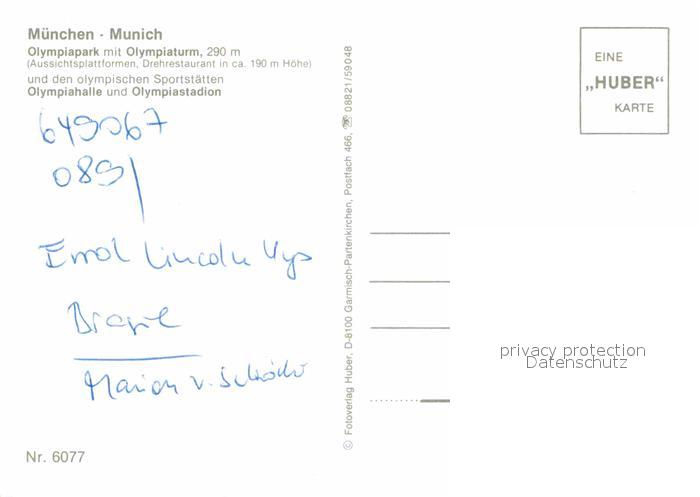 München · Munich
Olympiapark mit Olympiaturm, 290 m
(Aussichtsplattformen, Drehrestaurant in ca. 190 m Höhe)
und den olympischen Sportstätten
Olympiahalle und Olympiastadion
649067
089/
Errol Lincoln Uys
Brasil
Marion v. Schö
Nr. 6077
© Fotoverlag Huber, D-8100 Garmisch-Partenkirchen, Postfach 466, ☏ 08821/59048
EINE
„HUBER“
KARTE
privacy protection
Datenschutz